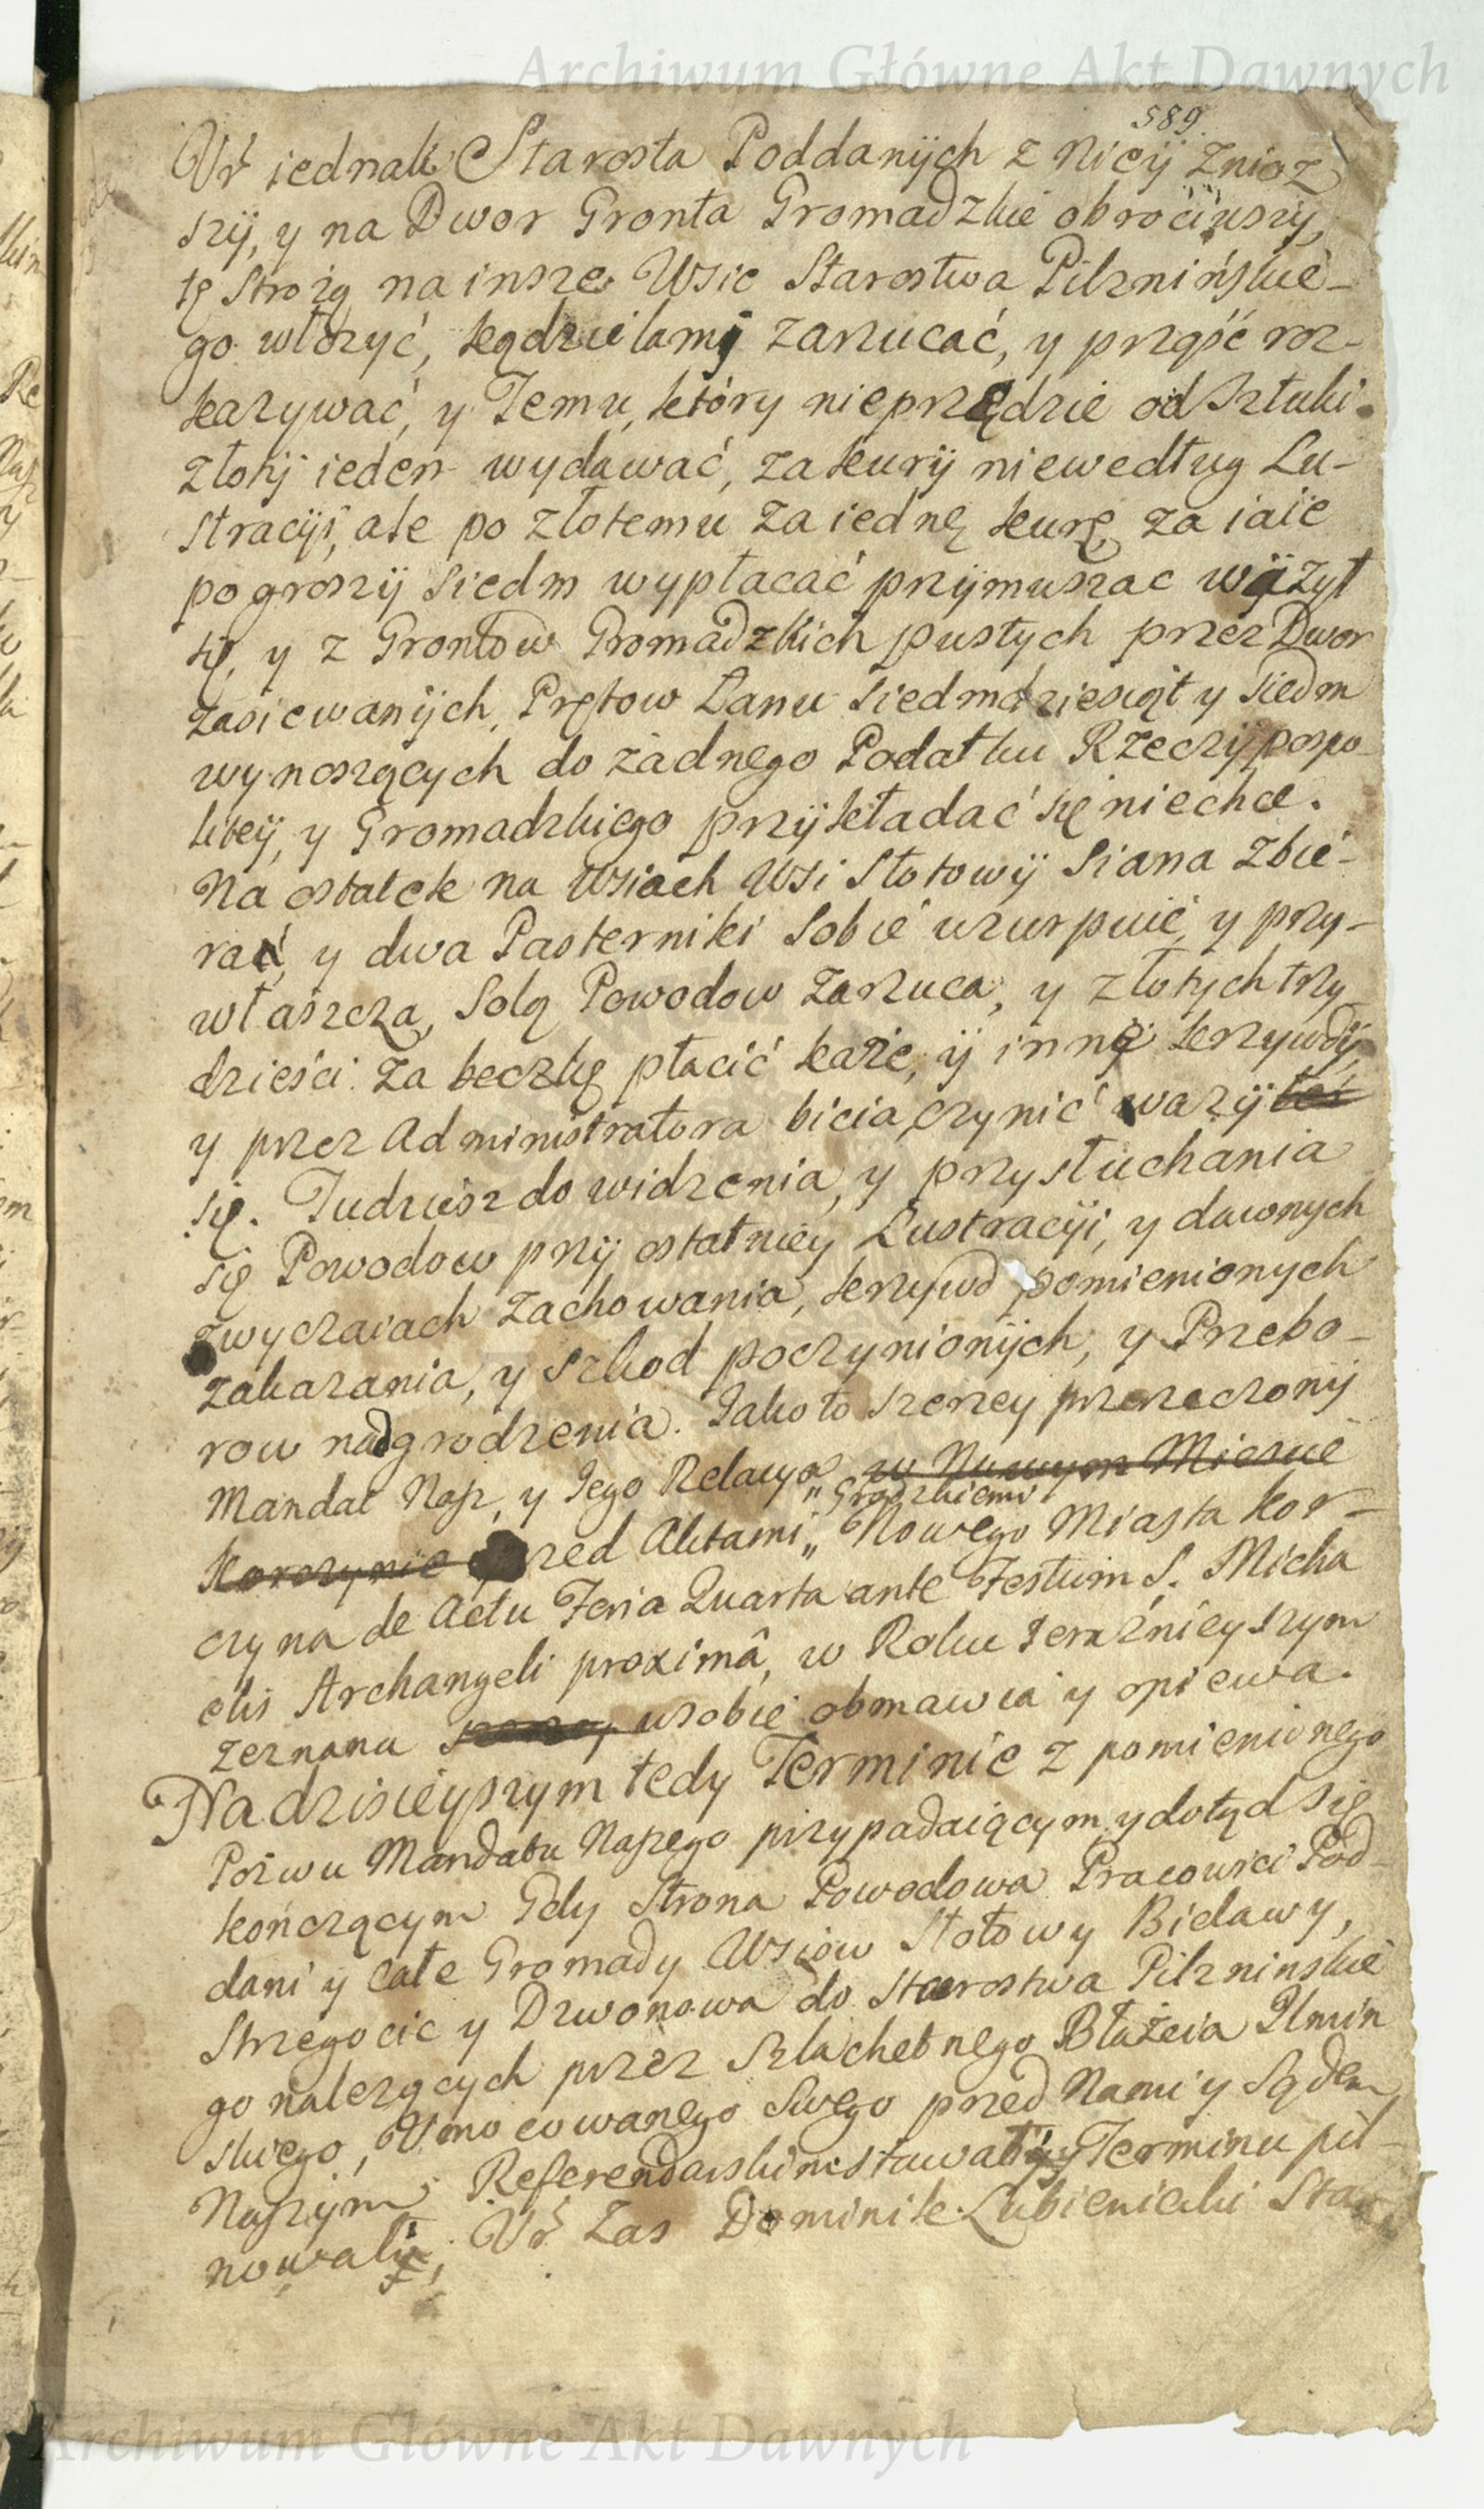 Archiwum Główne Akt Dawnych
589.
Ur iednak Starosta Poddanÿch z nieÿ znioz
szÿ, y na Dwor Gronta Gromadzkie obrociwszy,
tę Strożą na insze Wsie Starostwa Pilznińskie-
go włożyć, kądzielami zarzucać, y prząść roz-
kazywać, y Temu, który nieprzędzie od Sztuki
złotÿ ieden wydawać, za kurÿ niewedług Lu-
stracÿi, ale po złotemu za iednę kurę, za iaie
po groszÿ siedm wypłacać przÿmuszac ważył
się, y z Grontow Gromadzkich pustych przez Dwor
zasiewanÿch, Prętow Łanu siedmdziesiąt y siedm
wynoszących do żadnego Podatku Rzeczÿpospo-
liteÿ, y Gromadzkiego przÿkładać się niechce.
Na ostatek na Wsiach Wsi Słotowÿ Siana zbie-
rać, y dwa Pasterniki Sobie uzurpuie, y przy-
właszcza, Solą Powodow zarzuca, y złotych trzy
dzieści za beczkę płacić każe, ÿ inne krzywdÿ,
y przez Administratora bicia czynić ważył
się. Tudziesz do widzenia, y przysłuchania
się Powodow przÿ ostatniey Lustracÿi, y dawnych
zwyczaiach zachowania, krzywd pomienionych
zakazania, y szkod poczynionÿch, y Przebo-
row nadgrodzenia. Jako to szerzey przerzeczonÿ
Mandat Nasz, y Jego Relacya w Nowym Miescie
Grodzkiemi
Korczynie przed Aktami „ Nowego Miasta Kor-
czyna de Actu Feria Quarta ante Festum S. Micha
elis Archangeli proximâ, w Roku teraźnieyszym
zeznana w sobie obmawia y opiewa.
Na dzisieyszym tedy Terminie z pomienionego
Pozwu Mandatu Naszego przypadaiącym, y dotąd się
kończącym Gdy Strona Powodowa Pracowici Pod-
dani y całe Gromady Wsiow Słotowy Bielawy,
Strzegocic y Dzwonowa do Starostwa Pilzninskie
go nalezących przez Szlachetnego Błażeia Ilmin
skiego, Umocowanego Swego przed Nami y Sądem
Naszym Referendarskim stawały y Terminu pil-
nowały; Ur zas Dominik Łubieniecki Sta
Archiwum Główne Akt Dawnych